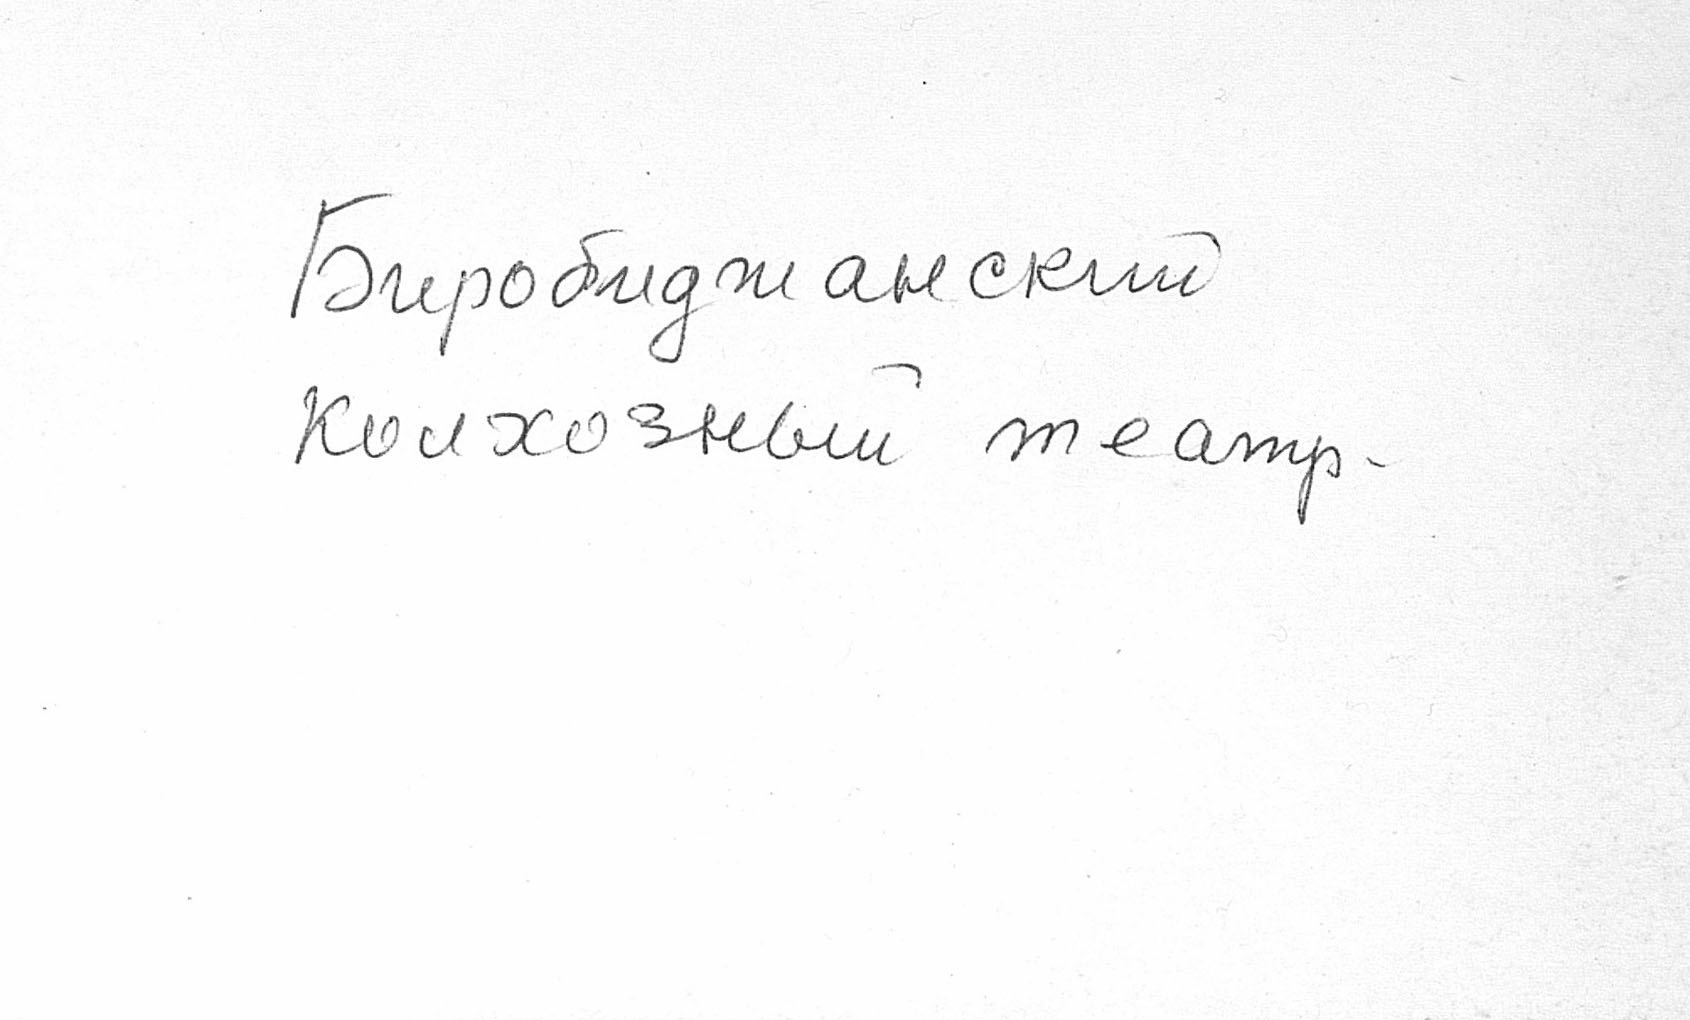 Биробиджанский
колхозный театр.